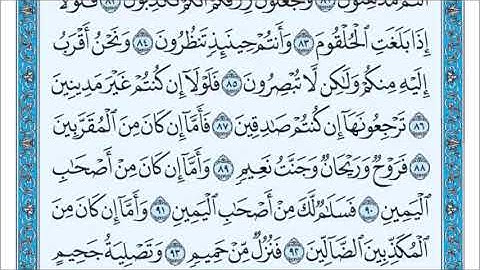 أَنتُم مُّدْهِنُونَ ٨١ وَتَجْعَلُونَ رِزْقَكُمْ أَنَّكُمْ تُكَذِّبُونَ ٨٢ فَلَوْلَا
إِذَا بَلَغَتِ ٱلْحُلْقُومَ ٨٣ وَأَنتُمْ حِينَئِذٍ تَنظُرُونَ ٨٤ وَنَحْنُ أَقْرَبُ
إِلَيْهِ مِنكُمْ وَلَٰكِن لَّا تُبْصِرُونَ ٨٥ فَلَوْلَا إِن كُنتُمْ غَيْرَ مَدِينِينَ
٨٦ تَرْجِعُونَهَا إِن كُنتُمْ صَٰدِقِينَ ٨٧ فَأَمَّا إِن كَانَ مِنَ ٱلْمُقَرَّبِينَ
٨٨ فَرَوْحٌ وَرَيْحَانٌ وَجَنَّتُ نَعِيمٍ ٨٩ وَأَمَّا إِن كَانَ مِنْ أَصْحَٰبِ
ٱلْيَمِينِ ٩٠ فَسَلَٰمٌ لَّكَ مِنْ أَصْحَٰبِ ٱلْيَمِينِ ٩١ وَأَمَّا إِن كَانَ مِنَ
ٱلْمُكَذِّبِينَ ٱلضَّآلِّينَ ٩٢ فَنُزُلٌ مِّنْ حَمِيمٍ ٩٣ وَتَصْلِيَةُ جَحِيمٍ